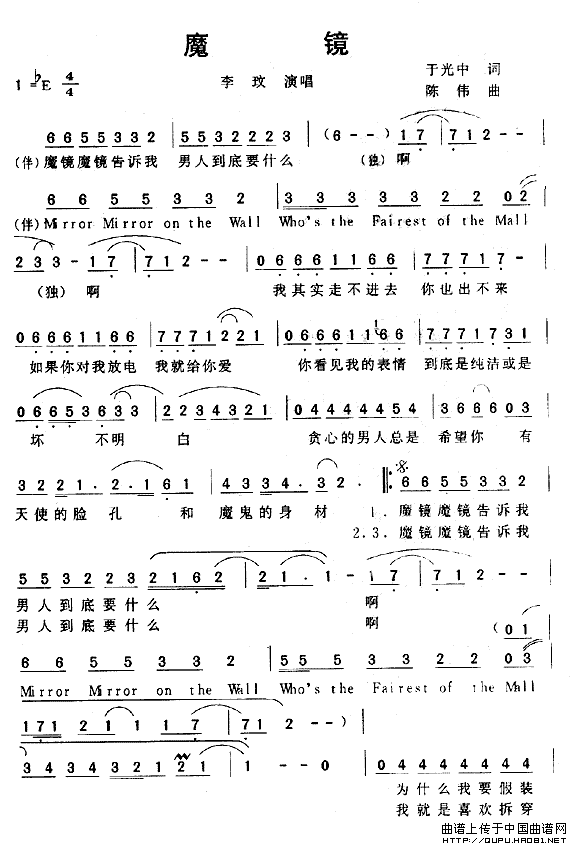 魔 镜
1=♭E 4/4 李 玟 演唱 于光中 词
陈 伟 曲
6 6 5 5 3 3 2 | 5 5 3 2 2 2 3 | (6 - -) 1 7 | 7 1 2 - - |
(伴)魔镜魔镜告诉我 男人到底要什么 (独)啊
6 6 5 5 3 3 2 | 3 3 3 3 3 2 2 0 2 |
(伴)Mirror Mirror on the Wall Who's the Fairest of the Mall
2 3 3 - 1 7 | 7 1 2 - - | 0 6 6 6 1 1 6 6 | 7 7 7 1 7 - |
(独)啊 我其实走不进去 你也出不来
0 6 6 6 1 1 6 6 | 7 7 7 1 2 2 1 | 0 6 6 6 1 1 6 6 | 7 7 7 1 7 3 1 |
如果你对我放电 我就给你爱 你看见我的表情 到底是纯洁或是
0 6 6 5 3 6 3 3 | 2 2 3 4 3 2 1 | 0 4 4 4 4 4 5 4 | 3 6 6 6 0 3 |
坏 不明 白 贪心的男人总是 希望你 有
3 2 2 1 . 2 . 1 6 1 | 4 3 3 4 . 3 2 . | 6 6 5 5 3 3 2 |
天使的脸 孔 和 魔鬼的身 材 1. 魔镜魔镜告诉我
2.3. 魔镜魔镜告诉我
5 5 3 2 2 3 | 2 1 6 2 | 2 1 . - 1 7 | 7 1 2 - - |
男人到底要什么 啊
男人到底要什么 啊
(0 1
6 6 5 5 3 3 2 | 5 5 5 3 3 2 2 0 3 |
Mirror Mirror on the Wall Who's the Fairest of the Mall
1 7 1 2 1 1 1 7 | 7 1 2 - -) |
3 4 3 4 3 2 1 2 1 | 1 - - 0 | 0 4 4 4 4 4 4 |
为什么我要假装
我就是喜欢拆穿
曲谱上传于中国曲谱网
http://QUPU.HAO81.NET